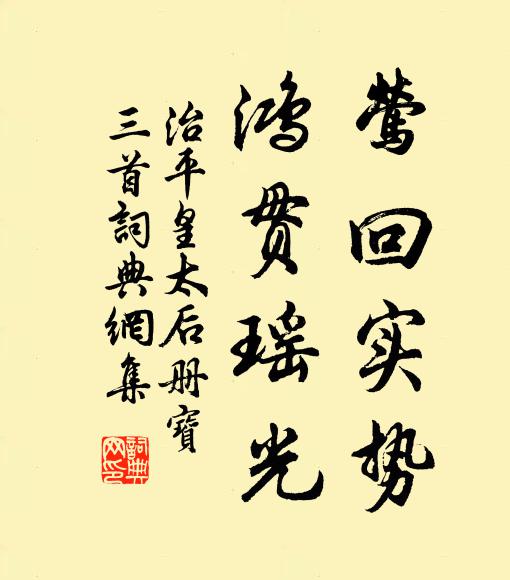 莺回实势
鸿贯瑶光
治平皇太后册寶
三首詞典網集
詞典网印